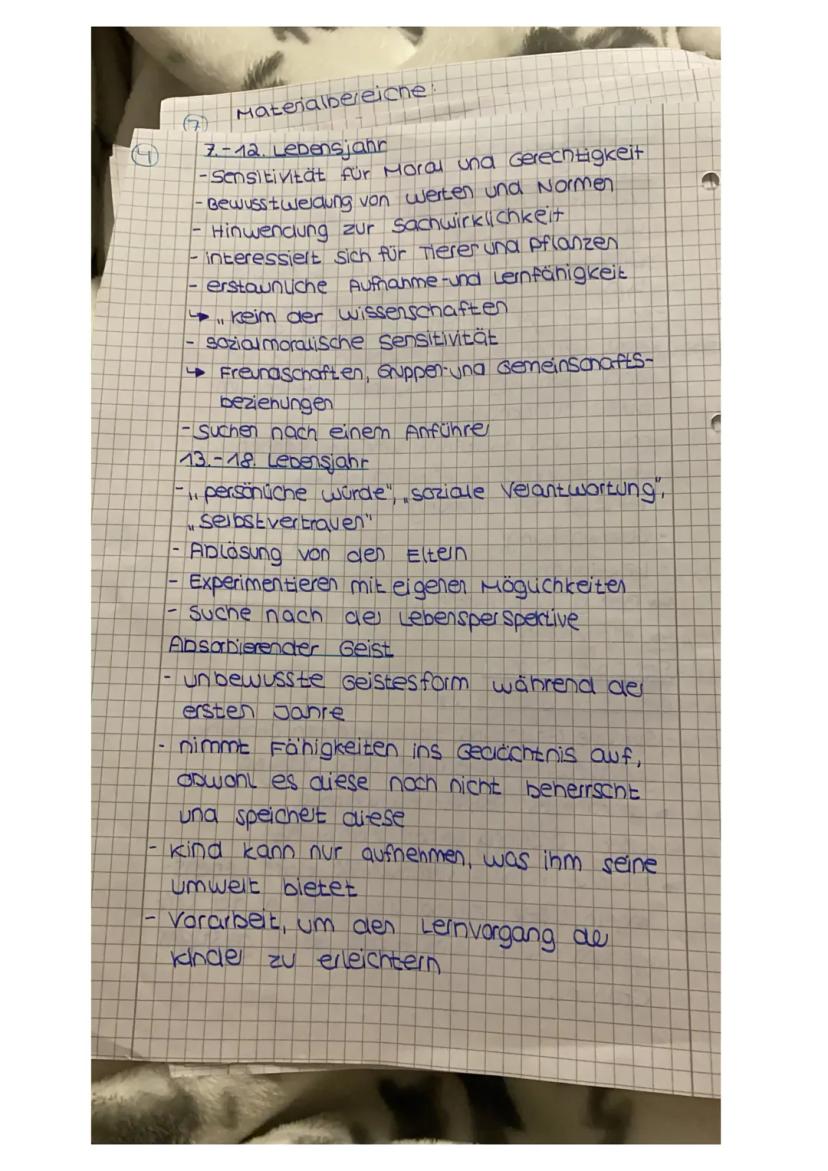 ⑦ Materialbereiche:
④ 7.-12. Lebensjahr
- Sensitivität für Moral und Gerechtigkeit
- Bewusstwerdung von Werten und Normen
- Hinwendung zur Sachwirklichkeit
- interessiert sich für Tiere und Pflanzen
- erstaunliche Aufnahme- und Lernfähigkeit
↳ „Keim der Wissenschaften
- sozialmoralische Sensitivität
↳ Freundschaften, Gruppen- und Gemeinschafts-
beziehungen
- suchen nach einem Anführer
13.-18. Lebensjahr
- „persönliche Würde", „soziale Verantwortung",
„Selbstvertrauen"
- Ablösung von den Eltern
- Experimentieren mit eigenen Möglichkeiten
- Suche nach der Lebensperspektive
Absorbierender Geist
- unbewusste Geistesform während der
ersten Jahre
- nimmt Fähigkeiten ins Gedächtnis auf,
obwohl es diese noch nicht beherrscht
und speichert diese
- Kind kann nur aufnehmen, was ihm seine
Umwelt bietet
- Vorarbeit, um den Lernvorgang der
Kinder zu erleichtern